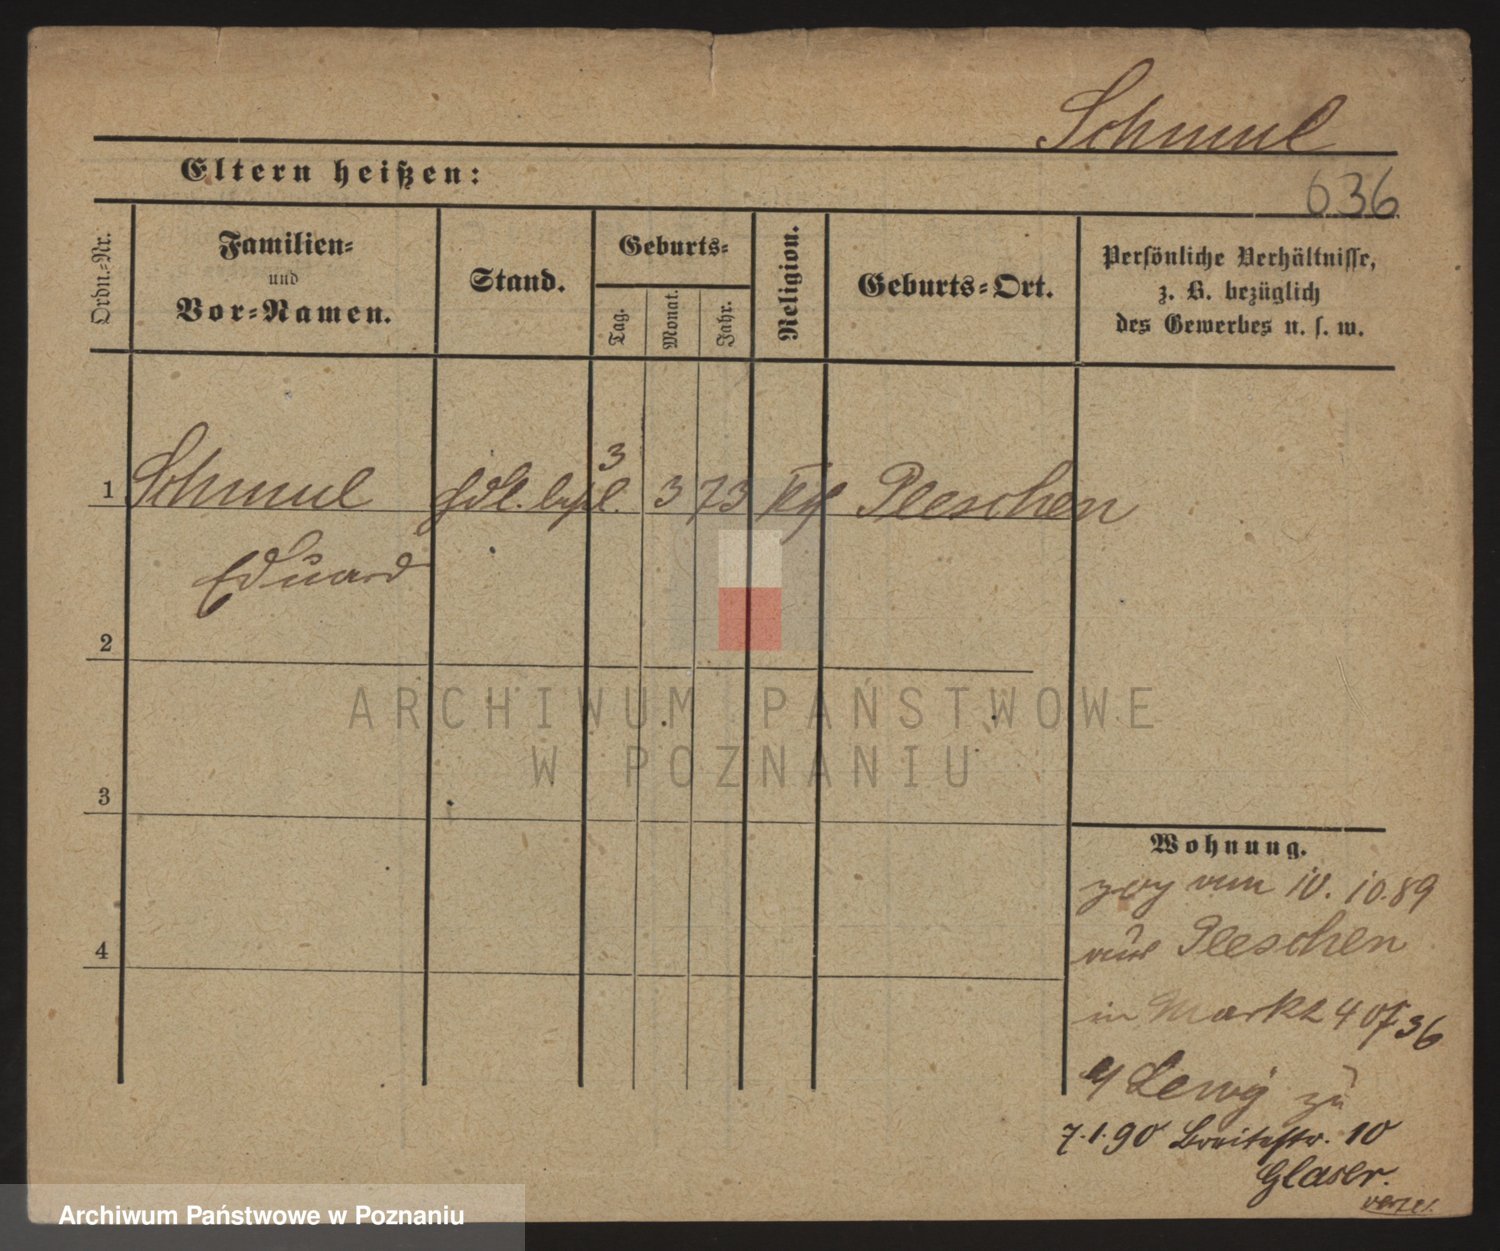 Schmul
Eltern heißen:
636
Ordn.-Nr.
Familien-
und
Vor-Namen.
Stand.
Geburts-
Tag.
Monat.
Jahr.
Religion.
Geburts-Ort.
Persönliche Verhältnisse,
z. B. bezüglich
des Gewerbes u. s. w.
3
1 Schmul Hdl. 3 73 Pleschen
Eduard
2
ARCHIWUM PAŃSTWOWE
W POZNANIU
3
4
Wohnung.
zog am 10. 10. 89
aus Pleschen
in Markt 40/736
Lewy zu
7.1.90 Breitestr. 10
Glaser.
Archiwum Państwowe w Poznaniu